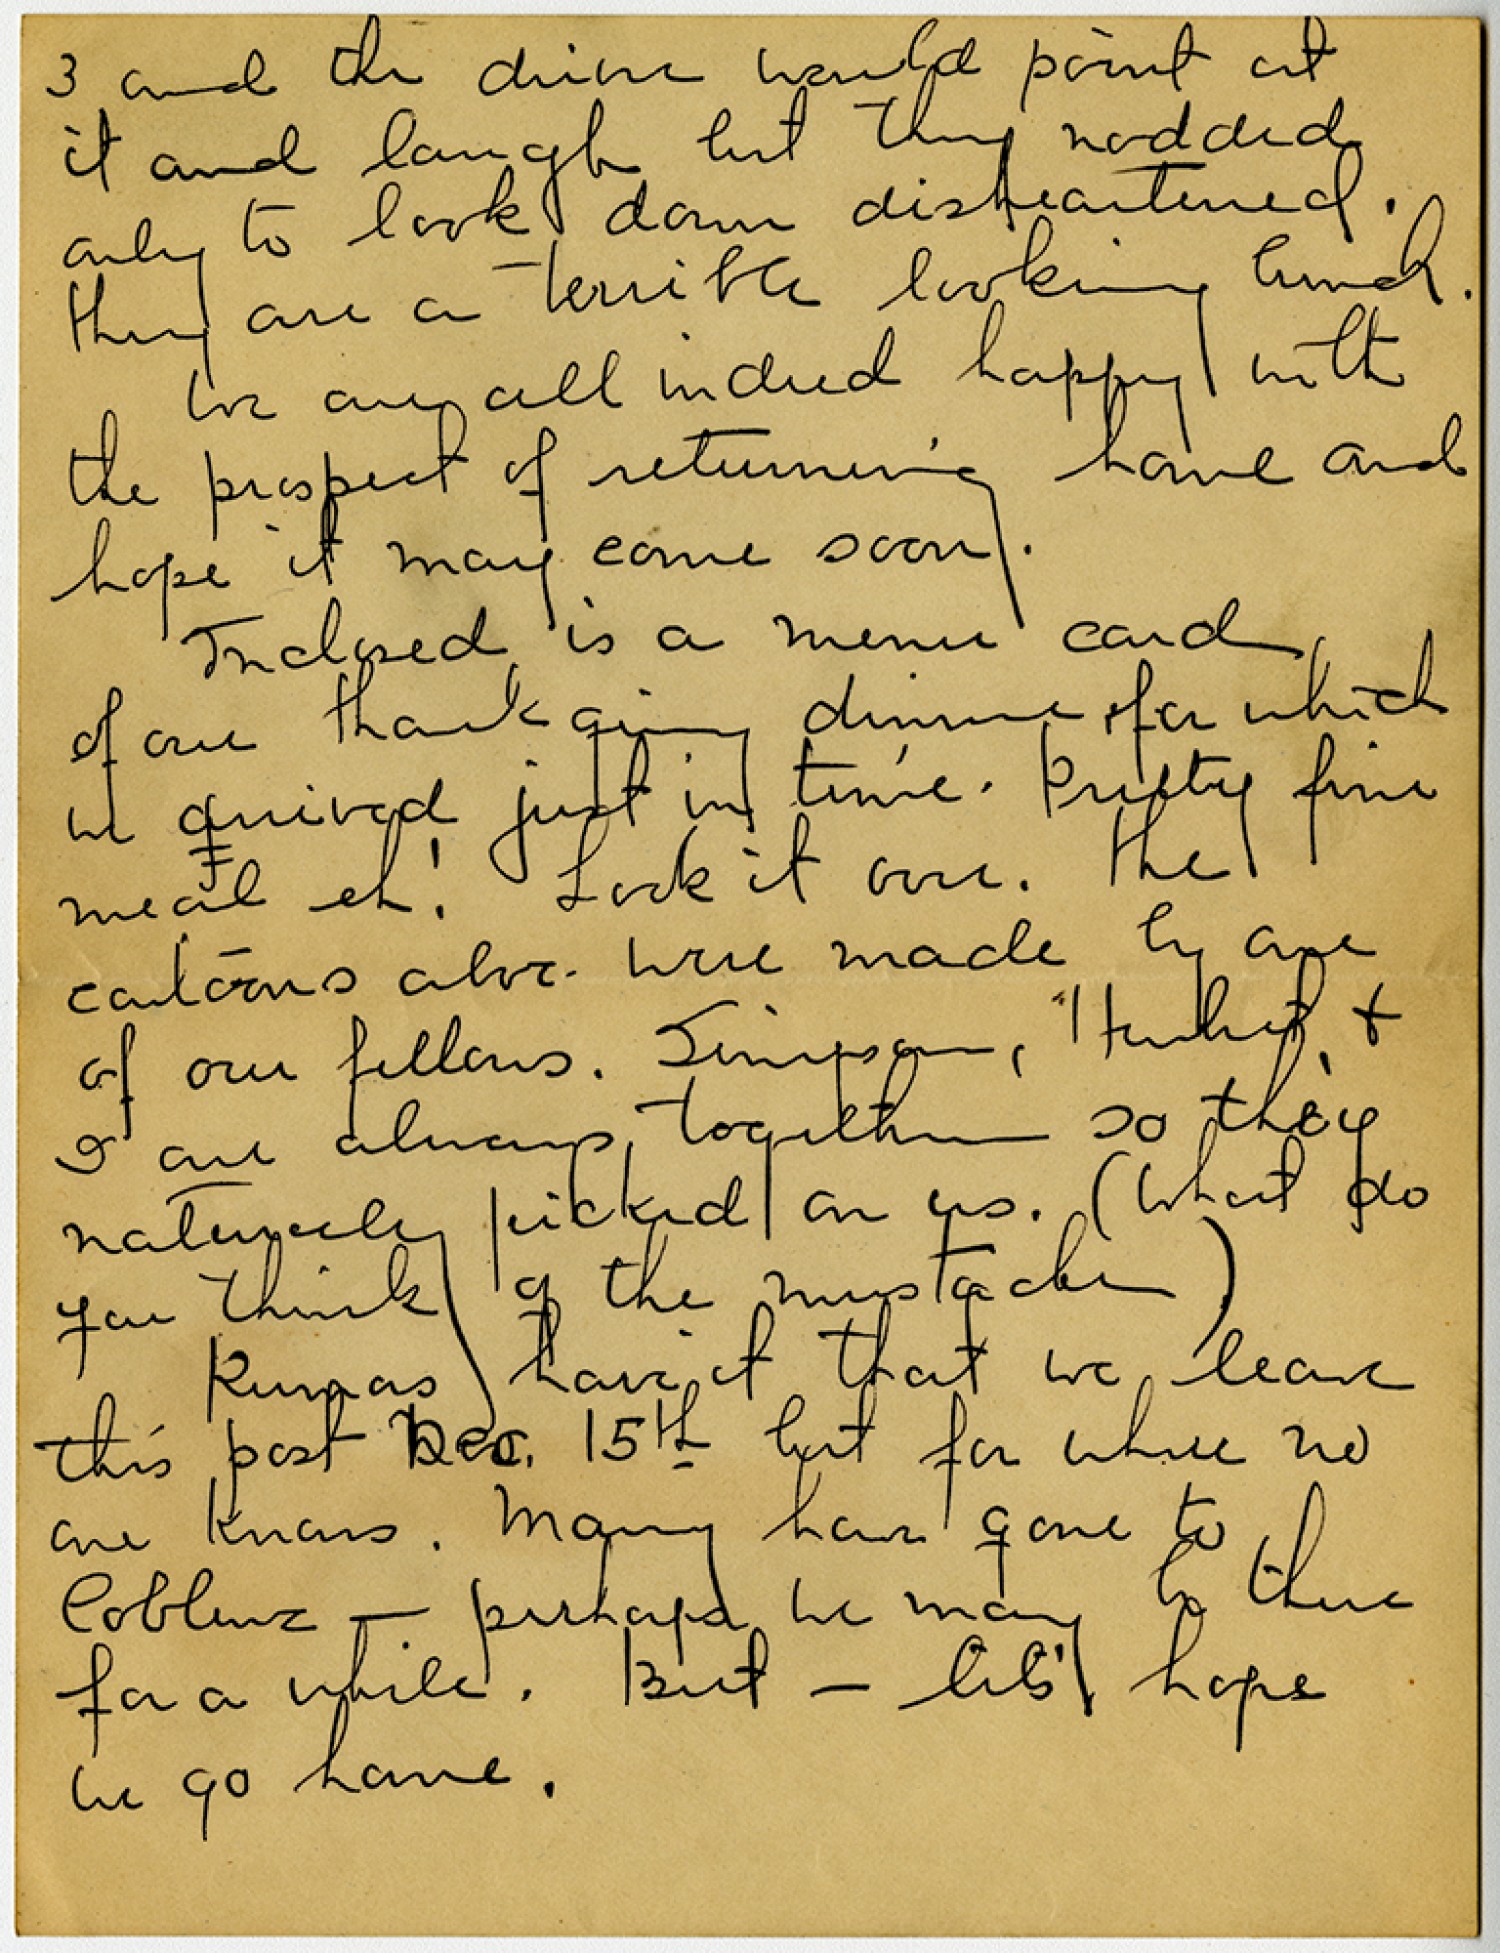 3 and the driver would point at
it and laugh but they nodded
only to look down disheartened.
they are a terrible looking bunch.
We are all indeed happy with
the prospect of returning home and
hope it may come soon.
Inclosed is a menu card
of our thanksgiving dinner for which
we arrived just in time. Pretty fine
meal eh! Look it over. The
cartoons above were made by one
of our fellows. Simpson, & 
I are always together so they
naturely picked on us. (What do
you think of the mustache)
Rumors have it that we leave
this post Dec. 15th but for where no
one knows. Many have gone to
Coblenz — perhaps we may be there
for a while. But — let's hope
we go home.